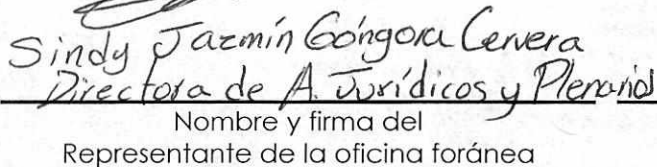 Sindy Jazmín Góngora Cervera
Directora de A. Jurídicos y Plenarios
Nombre y firma del
Representante de la oficina foránea